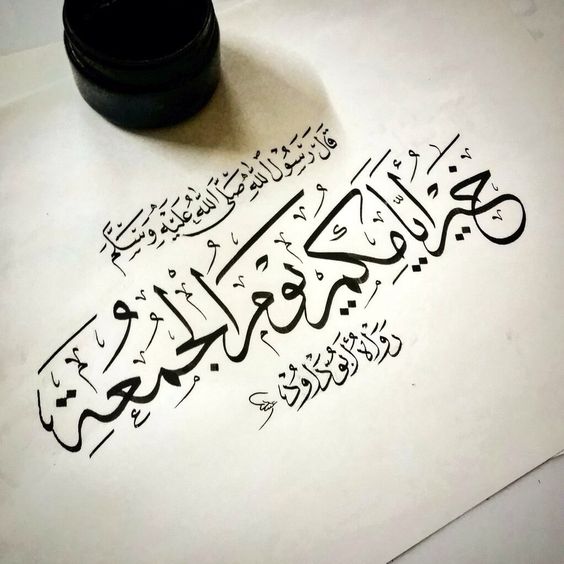 قَالَ رَسُولُ اللهِ صَلَّى اللهُ عَلَيْهِ وَسَلَّمَ
خَيْرُ أَيَّامِكُمْ يَوْمُ الْجُمُعَةِ
رَوَاهُ أَبُو دَاوُد